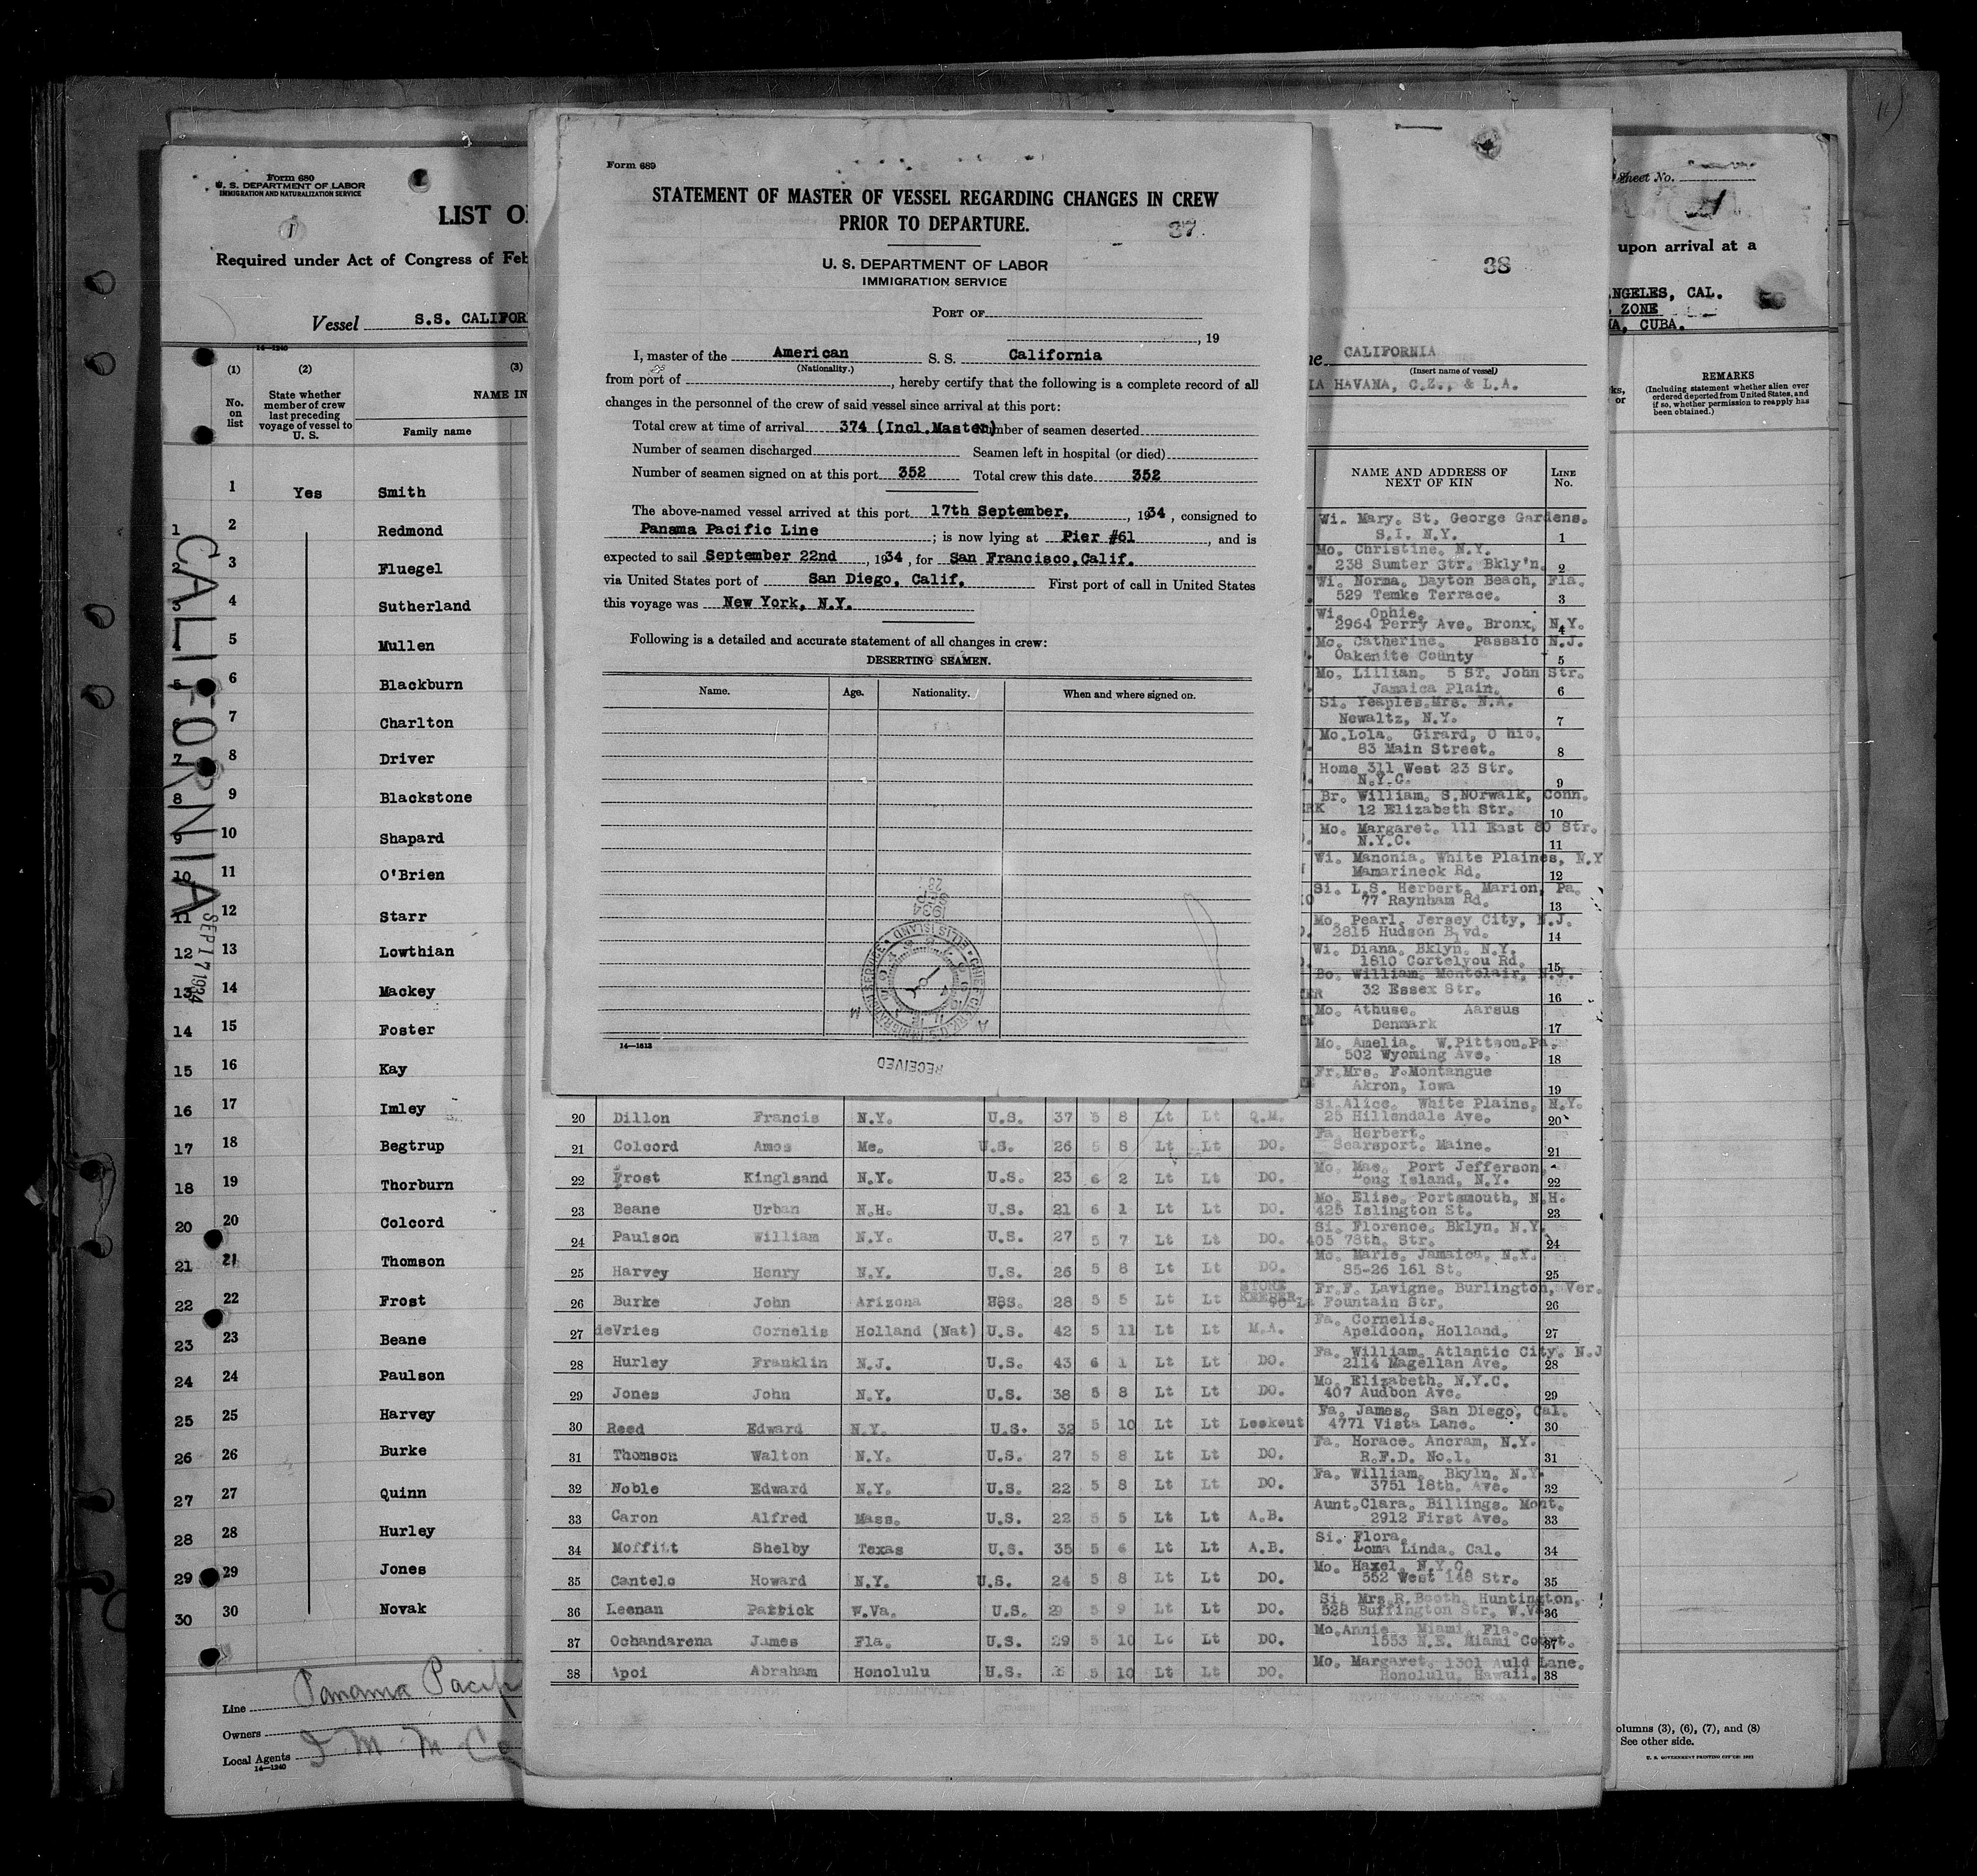 Form 680
U. S. DEPARTMENT OF LABOR
IMMIGRATION AND NATURALIZATION SERVICE
1
LIST O
Required under Act of Congress of Feb
Vessel S.S. CALIFOR
14—1240
(1) (2) (3)
No. on list
State whether member of crew last preceding voyage of vessel to U. S.
NAME IN
Family name
1 Yes Smith
1 2 Redmond
2 3 Fluegel
3 4 Sutherland
4 5 Mullen
5 6 Blackburn
7 Charlton
7 8 Driver
8 9 Blackstone
9 10 Shapard
10 11 O'Brien
11 12 Starr
12 13 Lowthian
13 14 Mackey
14 15 Foster
15 16 Kay
16 17 Imley
17 18 Begtrup
18 19 Thorburn
20 20 Colcord
21 21 Thomson
22 22 Frost
23 23 Beane
24 24 Paulson
25 25 Harvey
26 26 Burke
27 27 Quinn
28 28 Hurley
29 29 Jones
30 30 Novak
CALIFORNIA
SEP 17 1934
Line Panama Pacif
Owners
Local Agents I M M Co
14—1240
Form 689
STATEMENT OF MASTER OF VESSEL REGARDING CHANGES IN CREW
PRIOR TO DEPARTURE.
37.
U. S. DEPARTMENT OF LABOR
IMMIGRATION SERVICE
PORT OF
, 19
I, master of the American S. S. California
(Nationality.)
from port of , hereby certify that the following is a complete record of all
changes in the personnel of the crew of said vessel since arrival at this port:
Total crew at time of arrival 374 (Incl.Master) Number of seamen deserted
Number of seamen discharged Seamen left in hospital (or died)
Number of seamen signed on at this port 352 Total crew this date 352
The above-named vessel arrived at this port 17th September, , 1934 , consigned to
Panama Pacific Line ; is now lying at Pier #61 , and is
expected to sail September 22nd , 1934 , for San Francisco,Calif.
via United States port of San Diego, Calif. First port of call in United States
this voyage was New York, N.Y.
Following is a detailed and accurate statement of all changes in crew:
DESERTING SEAMEN.
Name. Age. Nationality. When and where signed on.
14—1613
RECEIVED
1934
ELLIS ISLAND
38
CALIFORNIA
(Insert name of vessel)
IA HAVANA, C.Z., & L.A.
NAME AND ADDRESS OF NEXT OF KIN
LINE No.
Wi. Mary. St. George Gardens.
S.I. N.Y. 1
Mo. Christine. N.Y.
238 Sumter Str. Bkly'n. 2
Wi. Norma. Dayton Beach, Fla.
529 Temke Terrace. 3
Wi. Ophie.
2964 Perry Ave. Bronx, N.Y. 4
Mo. Catherine. Passaic N.J.
Oakenite County 5
Mo. Lillian. 5 ST. John Str.
Jamaica Plain. 6
Si. Yeaples.Mrs. N.A.
Newaltz, N.Y. 7
Mo.Lola. Girard, O hio.
83 Main Street. 8
Home 311 West 23 Str.
N.Y.C. 9
Br. William. S.NOrwalk, Conn.
12 Elizabeth Str. 10
Mo. Margaret. 111 East 80 Str.
N.Y.C. 11
Wi. Manonia. White Plaines, N.Y
Mamarineck Rd. 12
Si. L.S. Herbert. Marion, Pa.
77 Raynham Rd. 13
Mo. Pearl. Jersey City, N.J.
2815 Hudson Blvd. 14
Wi. Diana. Bklyn. N.Y.
1810 Cortelyou Rd. 15
William. Montclair, N.J.
32 Essex Str. 16
Mo. Athuse. Aarsus
Denmark 17
Mo. Amelia. W.Pittson.Pa.
502 Wyoming Ave. 18
Fr.Mrs. F.Montangue
Akron, Iowa 19
Si.Alice. White Plains, N.Y.
20 Dillon Francis N.Y. U.S. 37 5 8 Lt Lt Q.M. 25 Hillendale Ave. 20
Fa. Herbert.
21 Colcord Amos Me. U.S. 26 5 8 Lt Lt DO. Searsport, Maine. 21
Mo. Mae. Port Jefferson,
22 Frost Kinglsand N.Y. U.S. 23 6 2 Lt Lt DO. Long Island, N.Y. 22
Mo. Elise. Portsmouth, N.H.
23 Beane Urban N.H. U.S. 21 6 1 Lt Lt DO. 425 Islington St. 23
Si. Florence. Bklyn. N.Y.
24 Paulson William N.Y. U.S. 27 5 7 Lt Lt DO. 405 78th. Str. 24
Mo. Marie. Jamaica, N.Y.
25 Harvey Henry N.Y. U.S. 26 5 8 Lt Lt DO. 85-26 161 St. 25
Fr.F. Lavigne. Burlington, Ver.
26 Burke John Arizona U.S. 28 5 5 Lt Lt STORE KEEPER Fountain Str. 26
Fa. Cornelis.
27 deVries Cornelis Holland (Nat) U.S. 42 5 11 Lt Lt M.A. Apeldoon, Holland. 27
Fa. William. Atlantic City. N.J
28 Hurley Franklin N.J. U.S. 43 6 1 Lt Lt DO. 2114 Magellan Ave. 28
Mo. Elizabeth. N.Y.C.
29 Jones John N.Y. U.S. 38 5 8 Lt Lt DO. 407 Audbon Ave. 29
Fa. James. San Diego, Cal.
30 Reed Edward N.Y. U.S. 32 5 10 Lt Lt Lookout 4771 Vista Lane. 30
Fa. Horace. Ancram, N.Y.
31 Thomson Walton N.Y. U.S. 27 5 8 Lt Lt DO. R.F.D. No.1. 31
Fa. William. Bkyln. N.Y.
32 Noble Edward N.Y. U.S. 22 5 8 Lt Lt DO. 3751 18th. Ave. 32
Aunt.Clara. Billings. Mont.
33 Caron Alfred Mass. U.S. 22 5 5 Lt Lt A.B. 2912 First Ave. 33
Si. Flora.
34 Moffitt Shelby Texas U.S. 35 5 6 Lt Lt A.B. Loma Linda. Cal. 34
Mo. Haxel. N.Y.C.
35 Cantelo Howard N.Y. U.S. 24 5 8 Lt Lt DO. 552 West 148 Str. 35
Si. Mrs.R.Booth. Huntington,
36 Leenan Patrick W.Va. U.S. 29 5 9 Lt Lt DO. 528 Buffington Str. W.Va 36
Mo.Annie. Miami Fla.
37 Ochandarena James Fla. U.S. 29 5 10 Lt Lt DO. 1553 N.E. Miami Court. 37
Mo. Margaret. 1301 Auld Lane.
38 Apoi Abraham Honolulu U.S. 5 10 Lt Lt DO. Honolulu, Hawaii. 38
Sheet No.
upon arrival at a
NGELES, CAL.
ZONE
A, CUBA.
ks,
or
REMARKS
(Including statement whether alien ever ordered deported from United States, and if so, whether permission to reapply has been obtained.)
olumns (3), (6), (7), and (8)
See other side.
U. S. GOVERNMENT PRINTING OFFICE: 1931